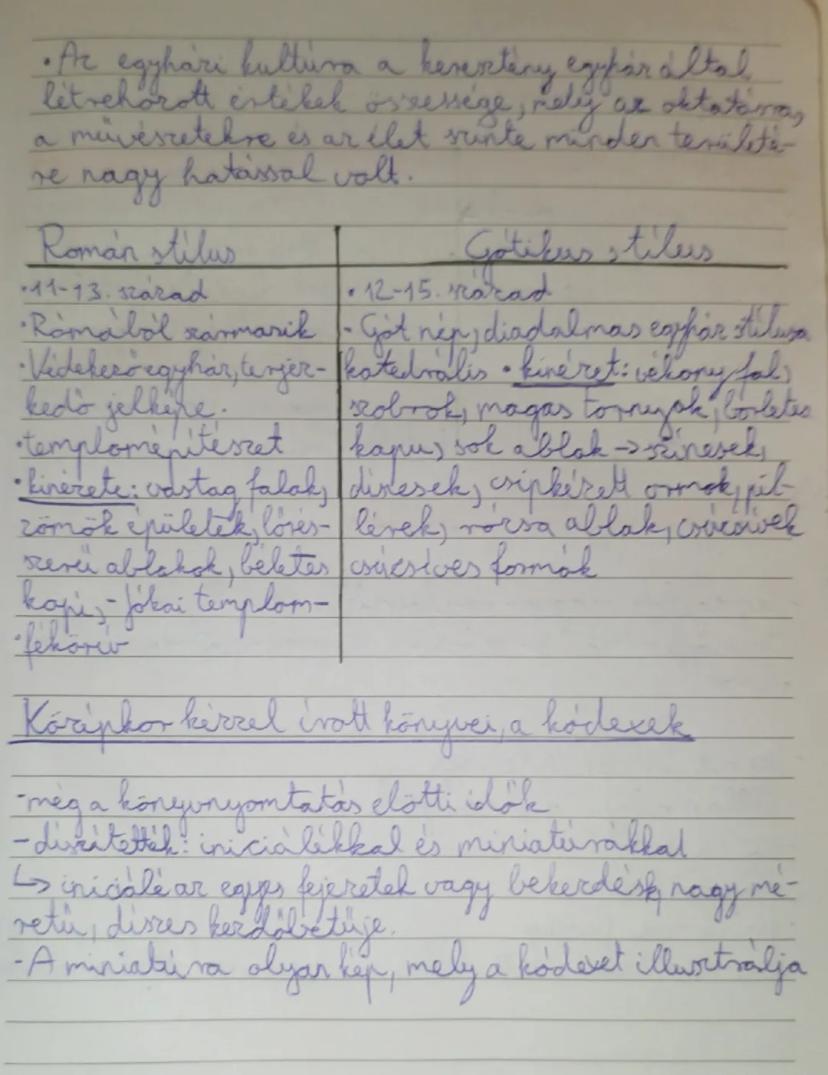 • Az egyházi kultúra a keresztény egyház által
létrehozott értékek összessége, mely az oktatásra,
a művészetekre és az élet szinte minden területé-
re nagy hatással volt.
Román stílus
• 11-13. század
• Rómából származik
• Védekező egyház, terjesz-
kedő jelképe.
• templomépítészet
• kinézete: vastag falak,
zömök épületek, lőrés-
szerű ablakok, béletes
kapu, - jókai templom-
• félkörív
Gótikus stílus
• 12-15. század
- Gót nép, diadalmas egyház stílusa
katedrális • kinézet: vékony fal,
szobrok, magas tornyok, bérletes
kapu, sok ablak → színesek,
díszesek, csipkézett ormok, pil-
lérek, rózsa ablak, csúcsívek
csúcsíves formák
Középkor kézzel írott könyvei, a kódexek
- még a könyvnyomtatás előtti idők
- díszítették: iniciálékkal és miniatúrákkal
↳ iniciálé az egyes fejezetek vagy bekezdések nagy mé-
retű, díszes kezdőbetűje.
- A miniatúra olyan kép, mely a kódexet illusztrálja